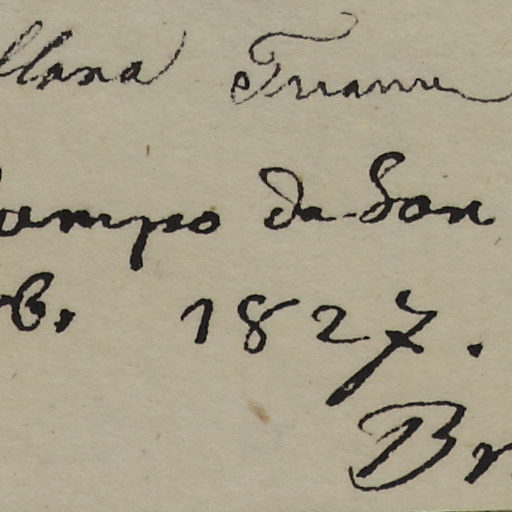 llana Trianae
Campo da Son
rb. 1827.
Br